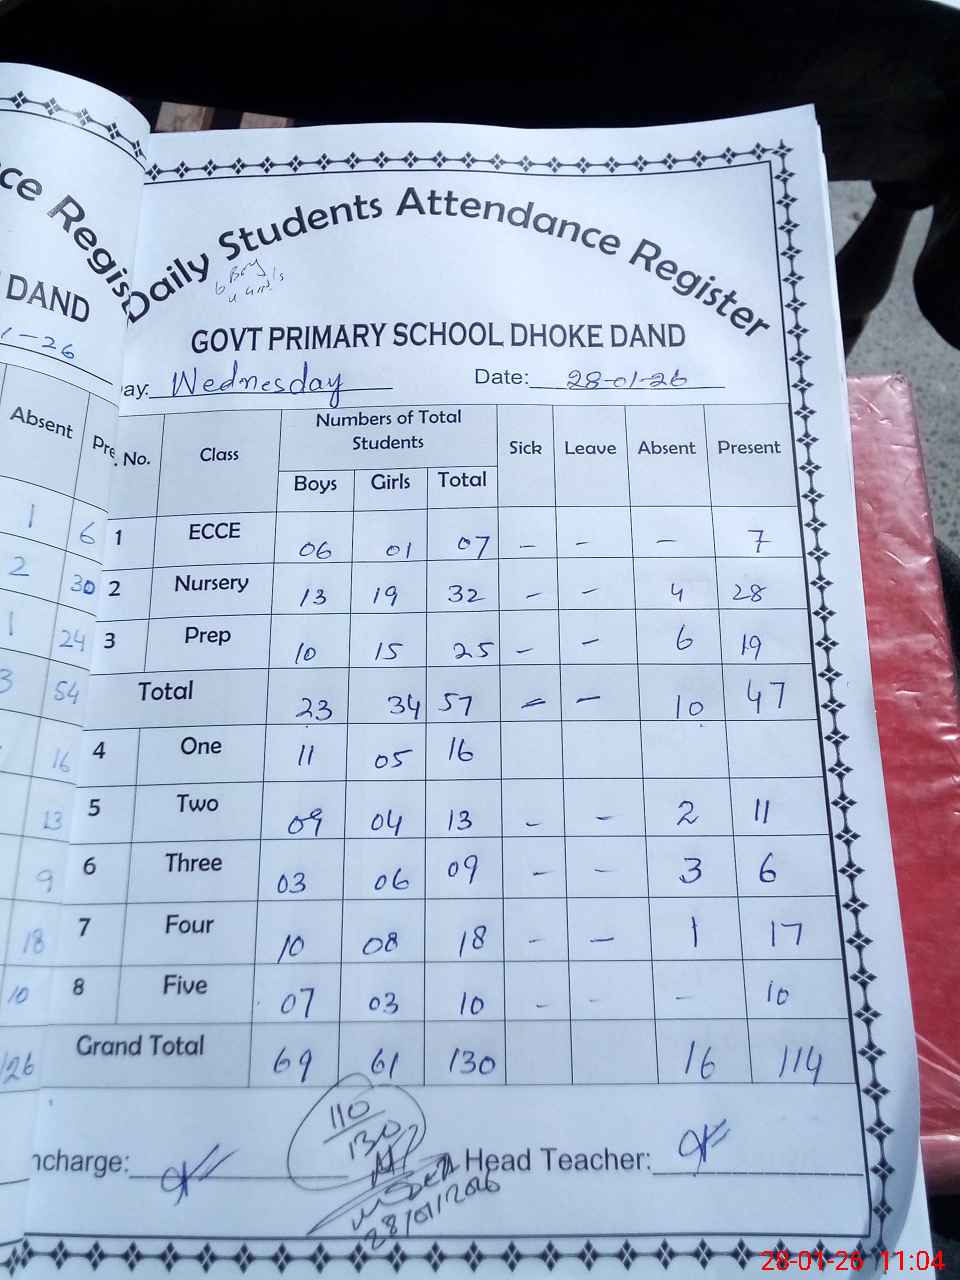 ce Regis
DAND
1-26
Absent
Pre
1 6
2 30
1 24
3 54
16
13
9
18
10
126
Daily Students Attendance Register
6 Boys
4 Girls
GOVT PRIMARY SCHOOL DHOKE DAND
ay: Wednesday Date: 28-01-26
. No. Class Numbers of Total Students Sick Leave Absent Present
Boys Girls Total
1 ECCE 06 01 07 – – – 7
2 Nursery 13 19 32 – – 4 28
3 Prep 10 15 25 – – 6 19
Total 23 34 57 – – 10 47
4 One 11 05 16
5 Two 09 04 13 – – 2 11
6 Three 03 06 09 – – 3 6
7 Four 10 08 18 – – 1 17
8 Five 07 03 10 – – – 10
Grand Total 69 61 130 16 114
110
130
ncharge: Head Teacher:
28/01/2026
28-01-26 11:04